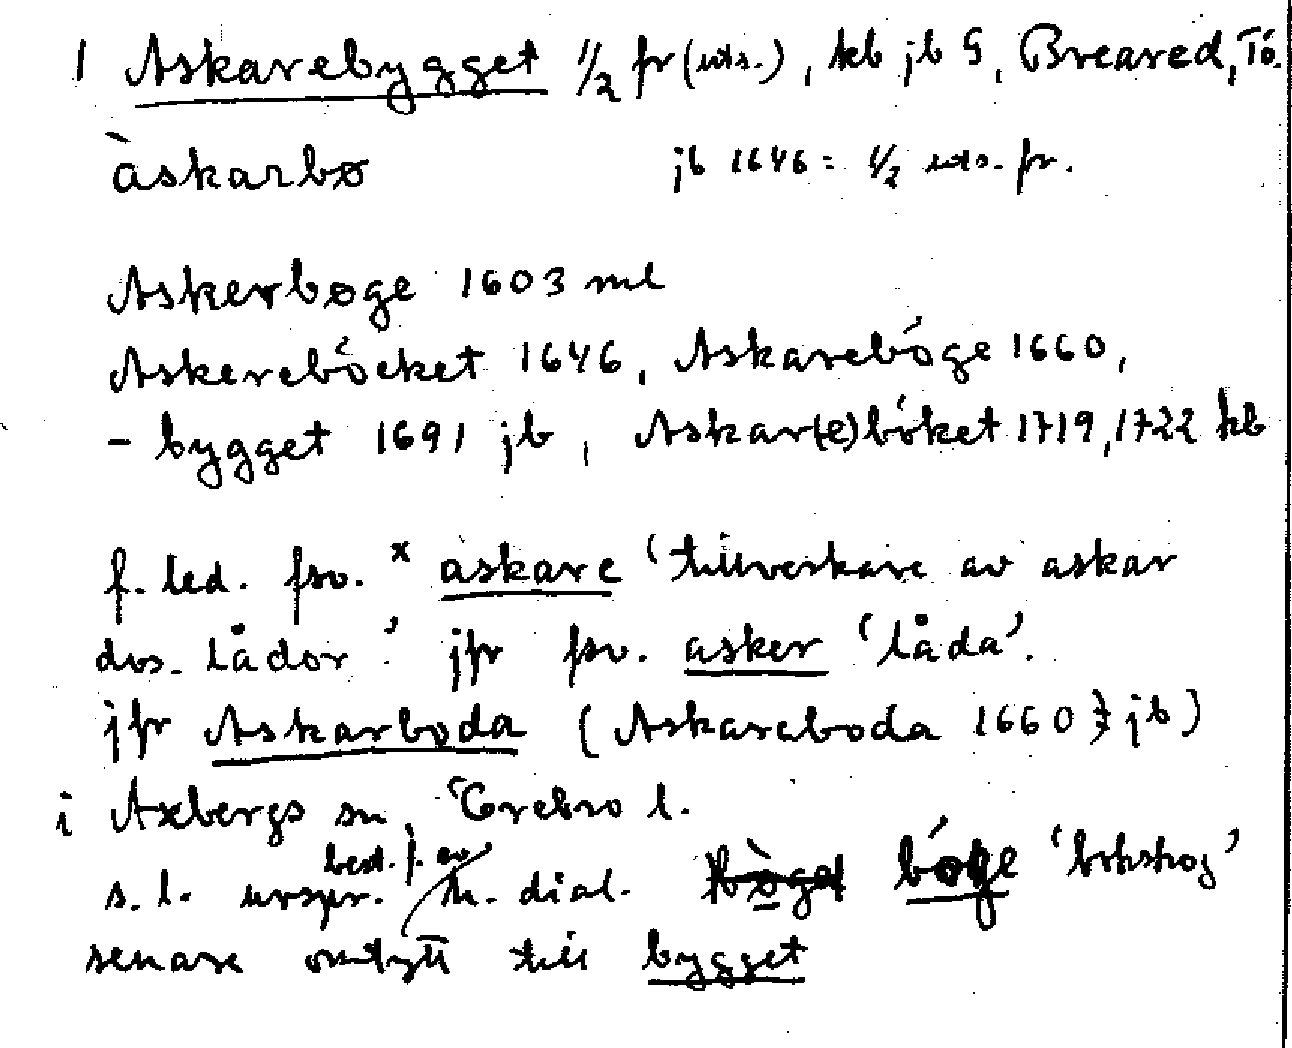 1 Askarebygget 1/2 fr (uts.), kb jb G, Breared, Tö.
àskarbø jb 1646: 1/2 uts. fr.
Askerbøge 1603 ml
Askereböcket 1646, Askareböge 1660,
- bygget 1691 jb, Askar(e)böket 1719, 1722 kb
f. led. fsv. x askare 'tillverkare av askar
dvs. lådor' jfr fsv. asker 'låda'.
jfr Askarboda (Askareboda 1660 jb)
i Axbergs sn, Örebro l.
s. l. urspr. best. f. av h. dial. böge 'bokskog'
senare omtytt till bygget